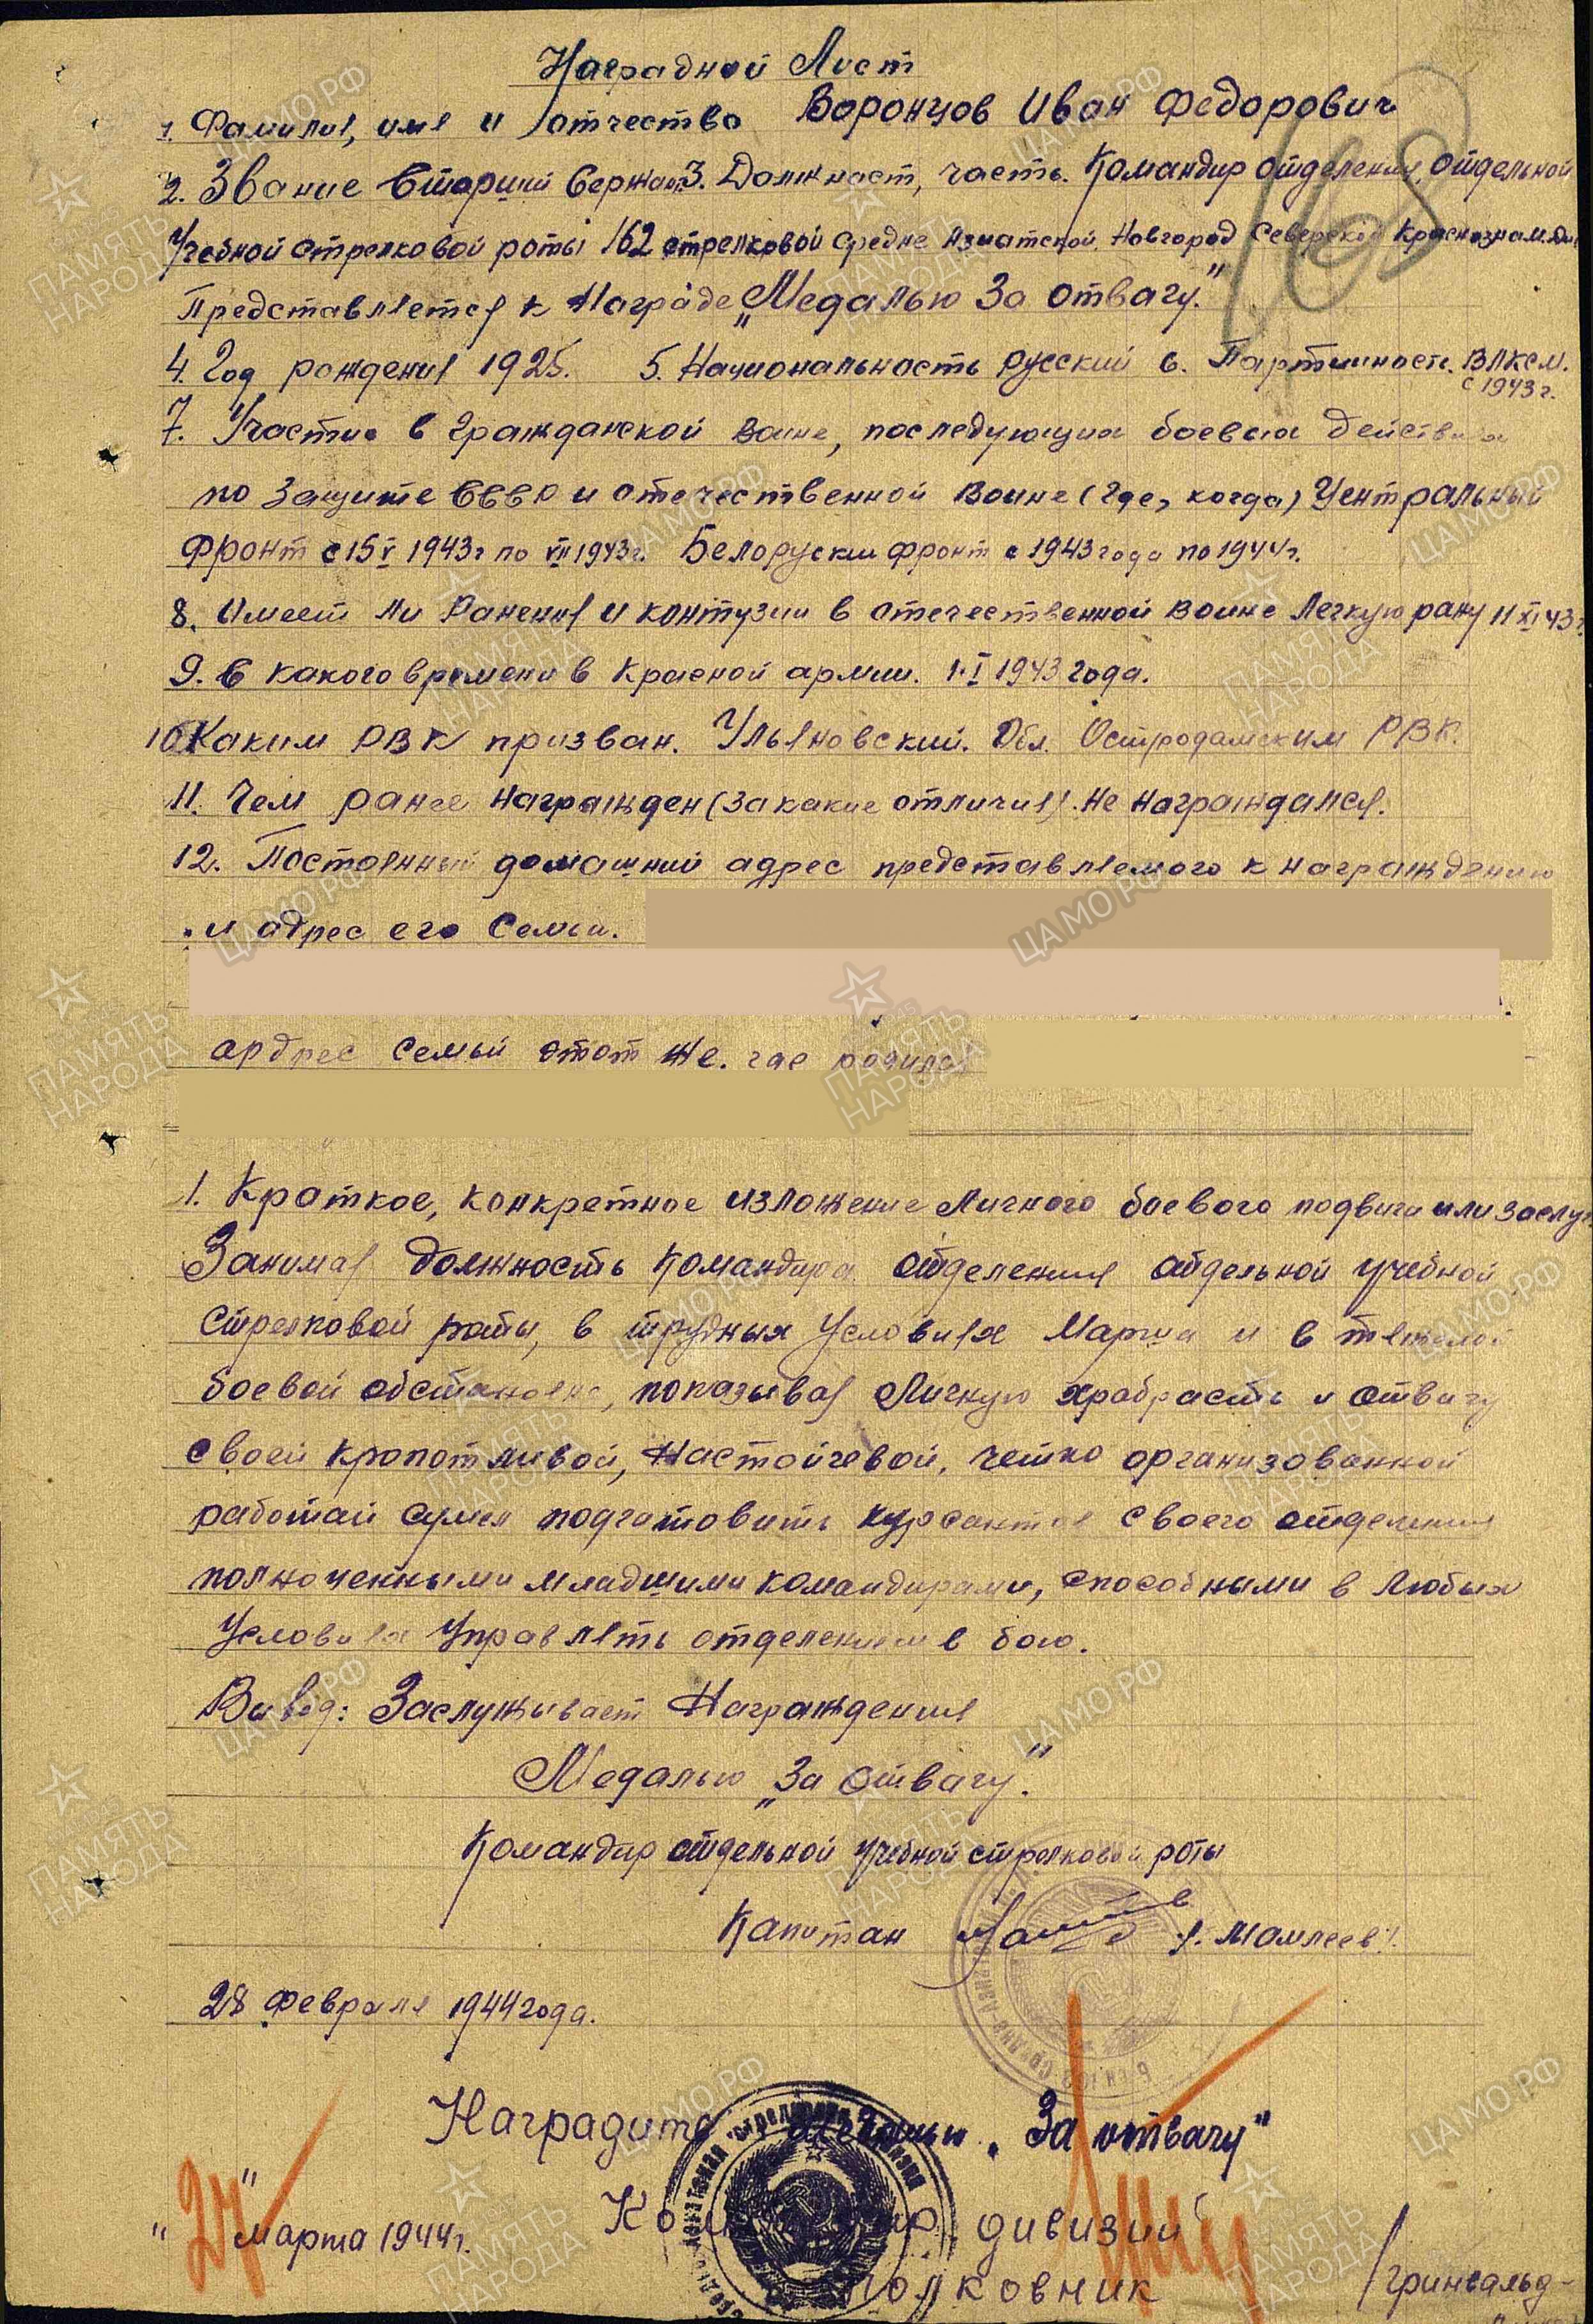 Наградной Лист
1. Фамилия, имя и отчество Воронцов Иван Федорович
2. Звание Старший Сержан 3. Должност, часть. Командир отделения, отдельной
Учебной стрелковой роты 162 стрелковой Средне Азиатской Новгород Северской Краснознамён
Представляется к Награде „Медалью За отвагу."
168
4. Год рождения 1925. 5. Национальность русский 6. Партийност. ВЛКСМ.
с 1943 г.
7. Участие в гражданской воине, последующих боевых действиях
по защите СССР и отечественной воине (где, когда) Центральный
фронт с 15 V 1943 г по VII 1943 г. Белоруский фронт с 1943 года по 1944 г.
8. Имеет ли Ранения и контузии в отечественной воине Легкую рану 11 XI 43 г.
9. С какого времени в Красной армии. 1. I 1943 года.
10 Каким РВК призван. Ульяновский. Обл. РВК.
11. Чем ранее награжден (за какие отличия). Не награждался.
12. Постоянный домашний адрес представляемого к награждению
и адрес его Семьи.
ардрес семьи этот же. где родился
1. Краткое, конкретное изложение Личного боевого подвига или заслуг
Занимая должность Командира отделения отдельной учебной
стрелковой роты, в трудных Условиях Марша и в тяжелой
боевой обстановке, показывая Личную храбрасть и отвагу
своей кропотливой, Настойчевой, четко организованной
работай сумел подготовить курсантов своего отделения
полноченными младшими командирами, способными в любых
Условиях Управлять отделением в бою.
Вывод: Заслуживает Награждения
Медалью „За отвагу".
Командир отдельной учебной стрелковой роты
Капитан /. Мамлеев /.
28 февраля 1944 года.
Наградить медалью „За отвагу"
Командир дивизии
"27" марта 1944 г.
Полковник /Гринвальд-